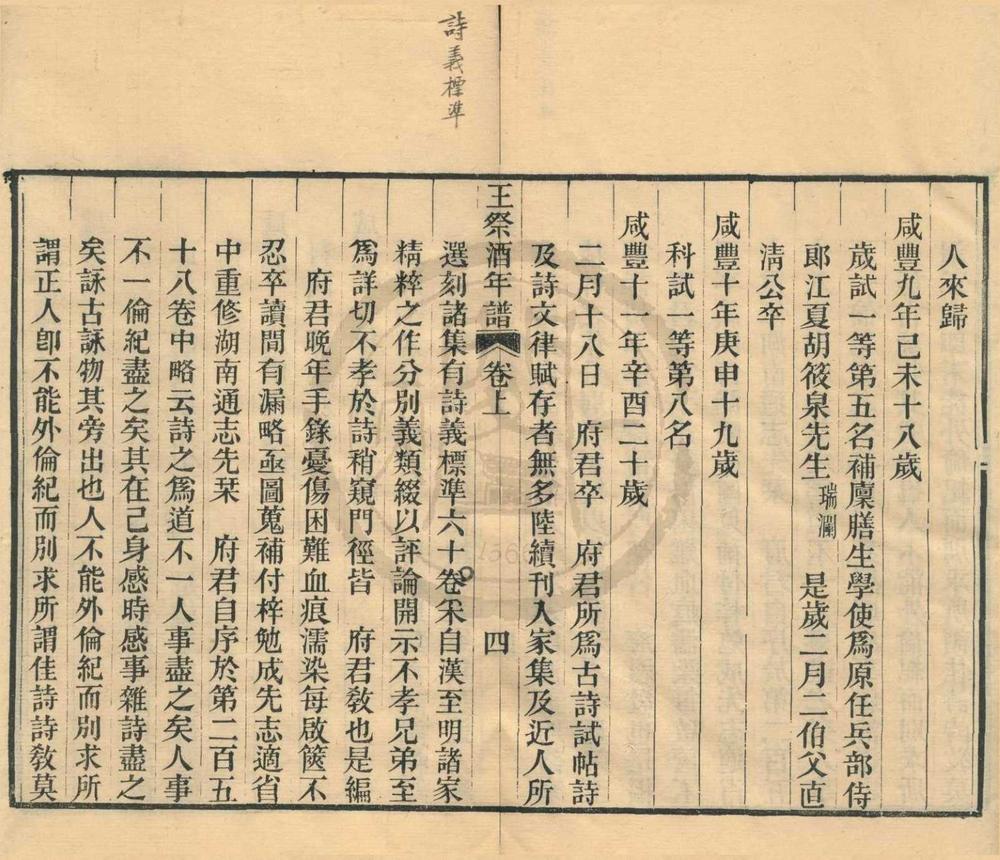 詩義標準
人來歸
咸豐九年己未十八歲
歲試一等第五名補廩膳生學使爲原任兵部侍
郎江夏胡筱泉先生瑞瀾　是歲二月二伯父直
淸公卒
咸豐十年庚申十九歲
科試一等第八名
咸豐十一年辛酉二十歲
二月十八日　府君卒　府君所爲古詩試帖詩
及詩文律賦存者無多陸續刊入家集及近人所
王祭酒年譜　卷上　四
選刻諸集有詩義標準六十卷采自漢至明諸家
精粹之作分別義類綴以評論開示不孝兄弟至
爲詳切不孝於詩稍窺門徑皆　府君敎也是編
府君晚年手錄憂傷困難血痕濡染每啟篋不
忍卒讀間有漏略亟圖蒐補付梓勉成先志適省
中重修湖南通志先栞　府君自序於第二百五
十八卷中略云詩之爲道不一人事盡之矣人事
不一倫紀盡之矣其在己身感時感事雜詩盡之
矣詠古詠物其旁出也人不能外倫紀而別求所
謂正人卽不能外倫紀而別求所謂佳詩詩敎莫